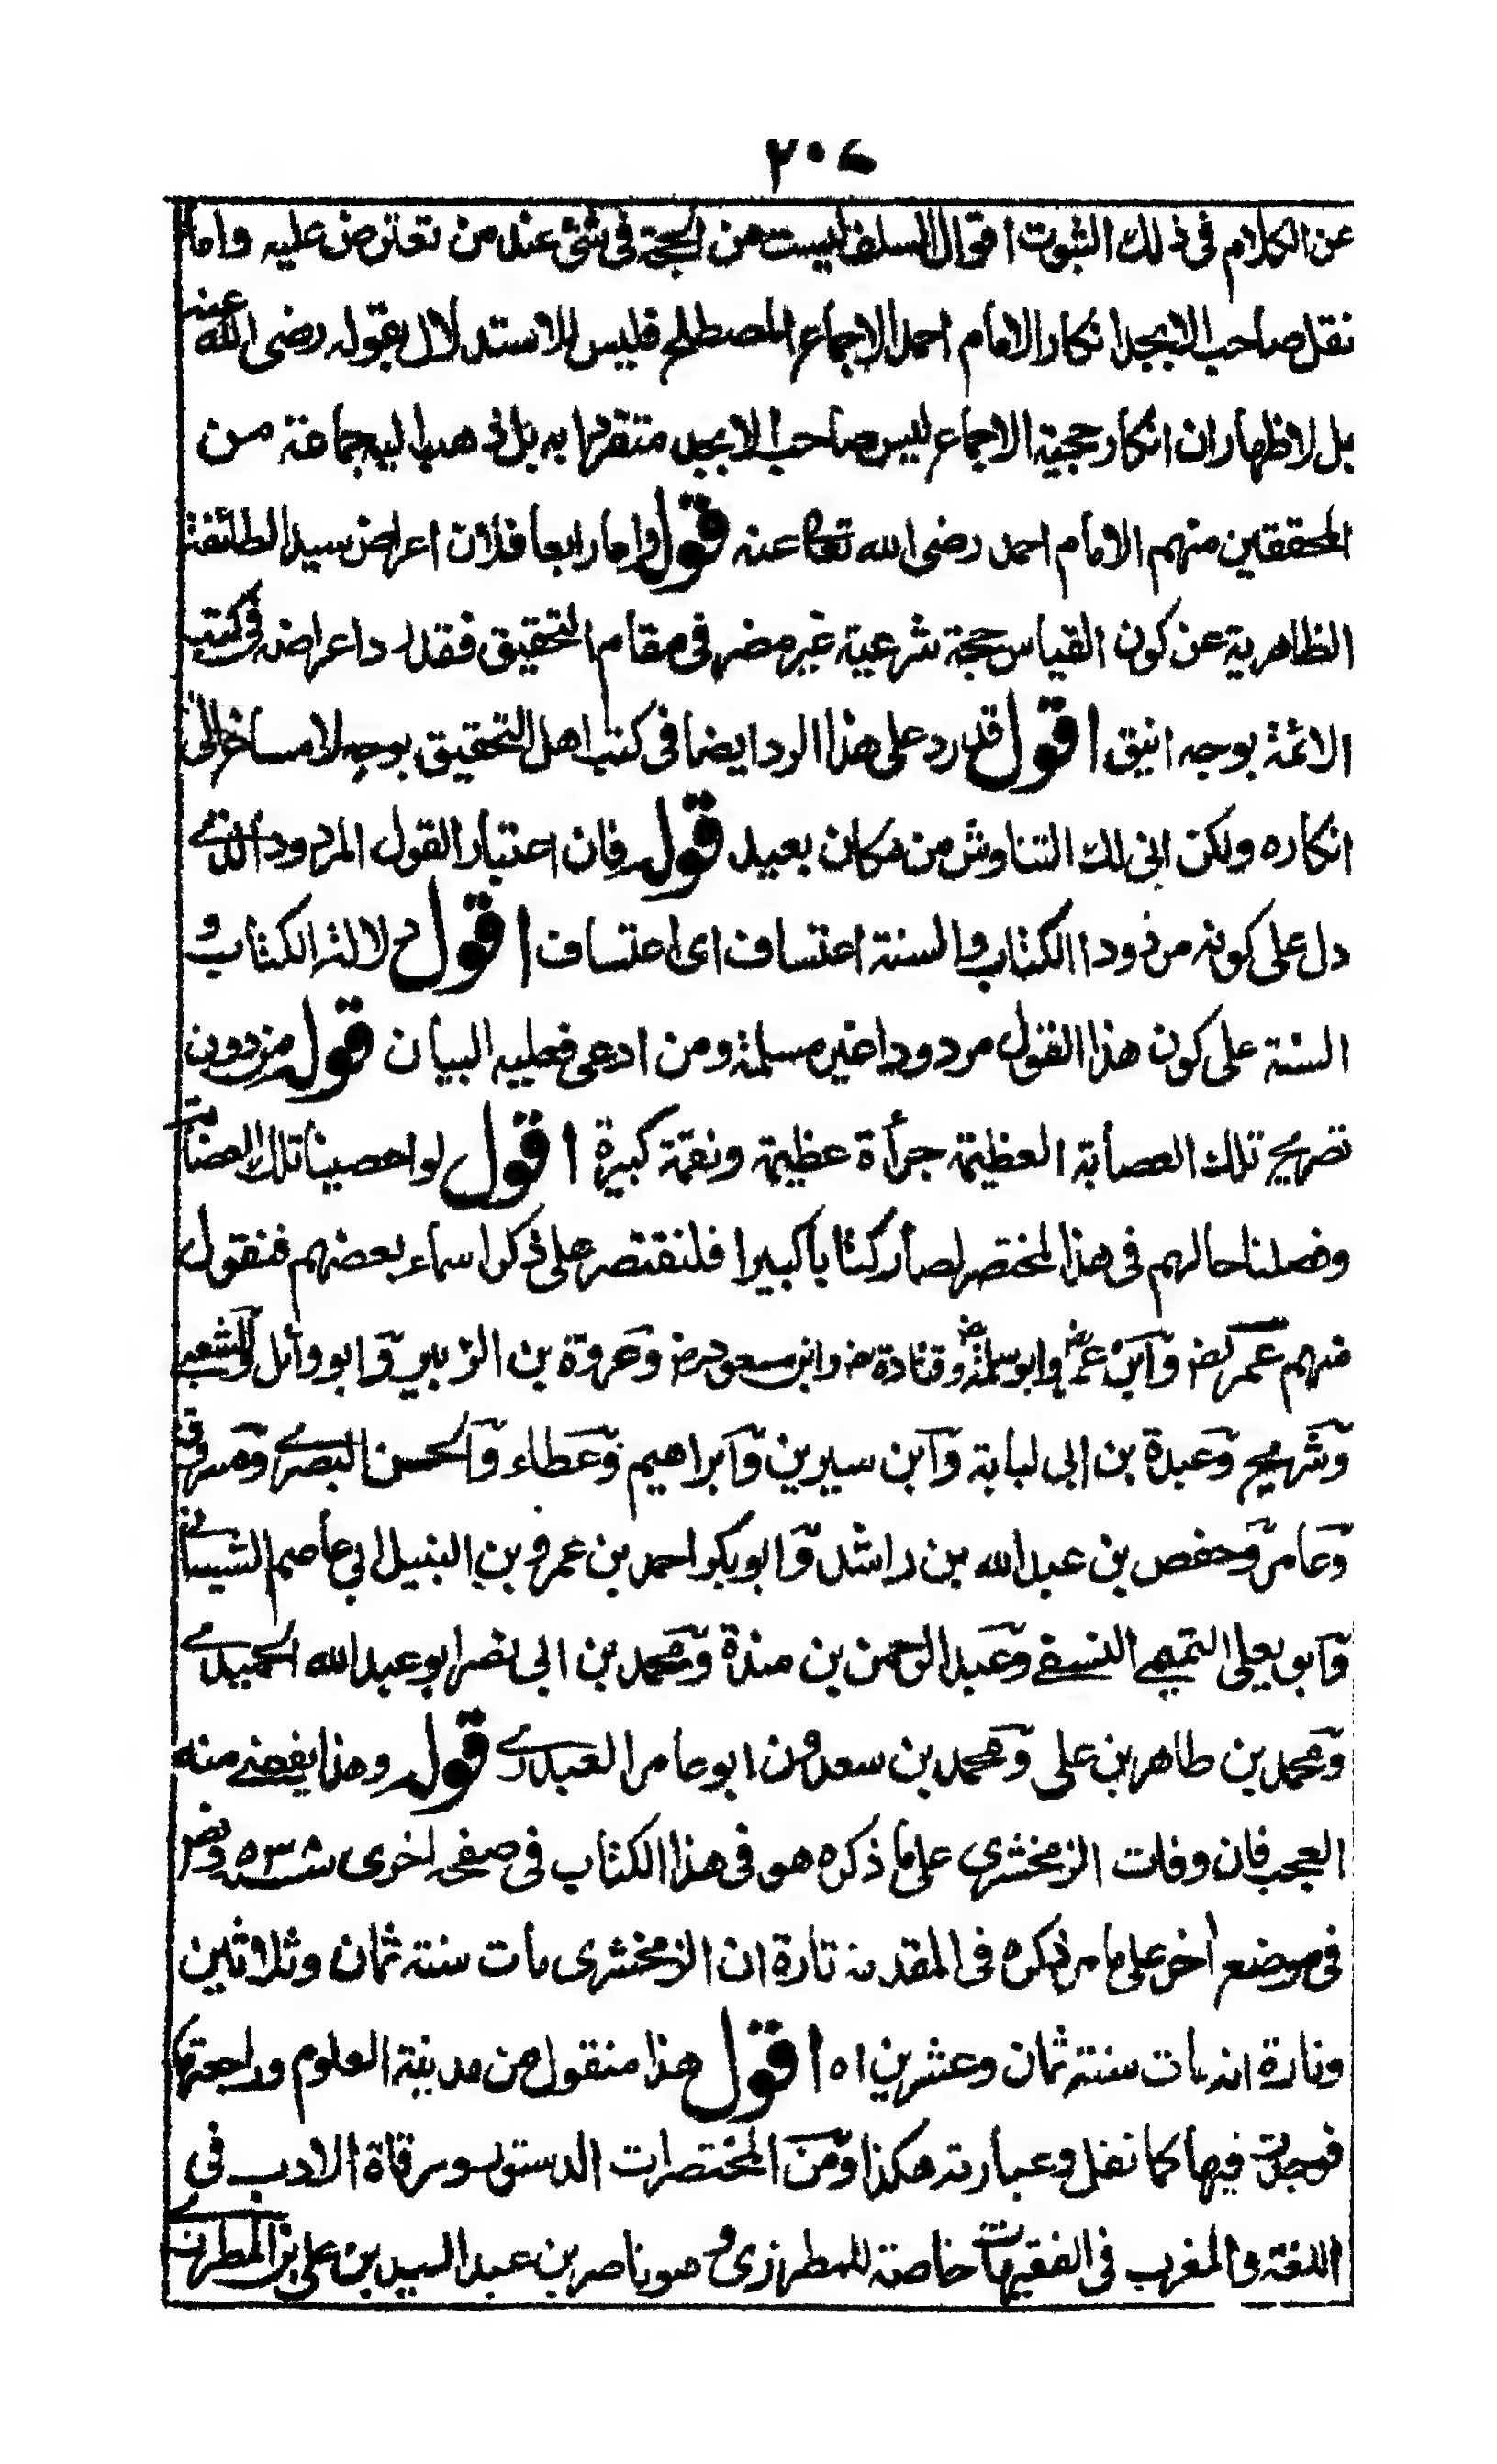 ٢٠٦
عن الكلام فى ذلك الثبوت اقوال السلف ليست من الحجة فى شئ عند من تعترض عليه واما
نقل صاحب الابجد انكار الامام احمد الاجماع المصطلح فليس للاستدلال بقوله رضى الله عنه
بل لاظهار ان انكار حجية الاجماع ليس صاحب الابجد متفردا به بل ذهب اليه جماعة من
المحققين منهم الامام احمد رضى الله تعالى عنه قوله واما رابعا فلان اعراض سيد الطائفة
الظاهرية عن كون القياس حجة شرعية غير مضر فى مقام التحقيق فقد رد اعراضه فى كتب
الائمة بوجه انيق اقول قد رد على هذا الرد ايضا فى كتب اهل التحقيق بوجه لا مساغ الى
انكاره ولكن انى لك التناوش من مكان بعيد قوله فان اعتبار القول المردود الذى
دل على كونه مردودا الكتاب والسنة اعتساف اى اعتساف اقول دلالة الكتاب و
السنة على كون هذا القول مردودا غير مسلمة ومن ادعى فعليه البيان قوله من دون
تصريح تلك العصابة العظيمة جرأة عظيمة ونقمة كبيرة اقول لو احصينا تلك العصابة
وفصلنا حالهم فى هذا المختصر لصار كتابا كبيرا فلنقتصر على ذكر اسماء بعضهم فنقول
منهم عمر رض وابن عمر رض وابو سلمة رض وقتادة رض وابن مسعود رض وعروة بن الزبير وابو وائل والشعبى
وشريح وعبدة بن ابى لبابة وابن سيرين وابراهيم وعطاء والحسن البصرى ومسروق
وعامر وحفص بن عبد الله بن راشد وابو بكر احمد بن عمرو بن النبيل ابى عاصم الشيبانى
وابو يعلى التميمى النسفى وعبد الرحمن بن مندة ومحمد بن ابى نصر ابو عبد الله الحميدى
ومحمد بن طاهر بن على ومحمد بن سعدون ابو عامر العبدرى قوله وهذا يفضى منه
العجب فان وفات الزمخشرى على ما ذكره هو فى هذا الكتاب فى صفحه اخرى سنه ٥٣ ونص
فى موضع اخر على ما مر ذكره فى المقدمة تارة ان الزمخشرى مات سنة ثمان وثلاثين
وتارة انه مات سنة ثمان وعشرين اه اقول هذا منقول من مدينة العلوم وراجعتها
فوجدت فيها كما نقل وعبارته هكذا ومن المختصرات الدستور ومرقاة الادب فى
اللغة والمغرب فى الفقهيات خاصة للمطرزى وهو ناصر بن عبد السيد بن على بن المطرزى